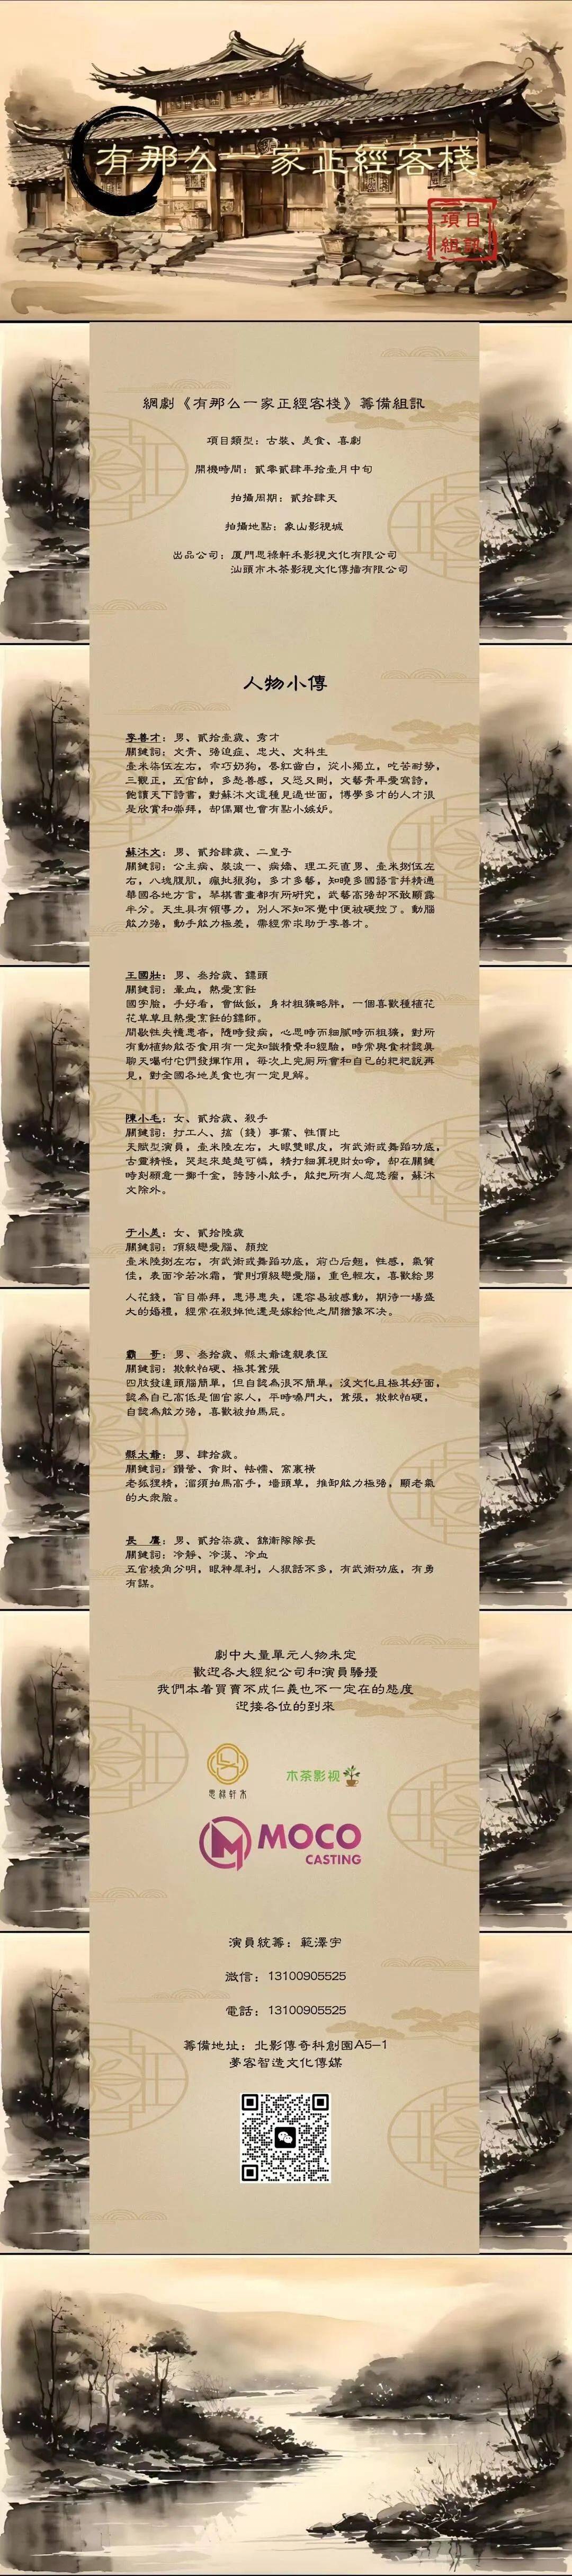 有那么一家正經客棧
項目
組訊
網劇《有那么一家正經客棧》籌備組訊
項目類型：古裝、美食、喜劇
開機時間：貳零貳肆年拾壹月中旬
拍攝周期：貳拾肆天
拍攝地點：象山影視城
出品公司：厦門思祿軒禾影視文化有限公司
汕頭市木茶影視文化傳播有限公司
人物小傳
李善才：男、貳拾壹歲、秀才
關鍵詞：文青、強迫症、忠犬、文科生
壹米柒伍左右，乖巧奶狗，唇紅齒白，從小獨立，吃苦耐勞，
三觀正，五官帥，多愁善感，又恐又剛，文藝青年愛寫詩，
飽讀天下詩書，對蘇沐文這種見過世面，博學多才的人才很
是欣賞和崇拜，却偶爾也會有點小嫉妒。
蘇沐文：男、貳拾肆歲、二皇子
關鍵詞：公主病、裝波一、病嬌、理工死直男、壹米捌伍左
右，八塊腹肌，瘋批狠狗，多才多藝，知曉多國語言并精通
華國各地方言，琴棋書畫都有所研究，武藝高強却不敢顯露
半分。天生具有領導力，別人不知不覺中便被硬控了。動腦
能力強，動手能力極差，需經常求助于李善才。
王國壯：男、叁拾歲、鏢頭
關鍵詞：暈血，熱愛烹飪
國字臉，手好看，會做飯，身材粗獷略胖，一個喜歡種植花
花草草且熱愛烹飪的鏢師。
間歇性失憶患者，隨時發病，心思時而細膩時而粗獷，對所
有動植物能否食用有一定知識積纍和經驗，時常與食材認真
聊天囑咐它們發揮作用，每次上完厠所會和自己的粑粑說再
見，對全國各地美食也有一定見解。
陳小毛：女、貳拾歲、殺手
關鍵詞：打工人、搞（錢）事業、性價比
天賦型演員，壹米陸左右，大眼雙眼皮，有武術或舞蹈功底，
古靈精怪，哭起來楚楚可憐，精打細算視財如命，却在關鍵
時刻願意一擲千金，誇誇小能手，能把所有人忽悠瘸，蘇沐
文除外。
于小美：女、貳拾陸歲
關鍵詞：頂級戀愛腦、顏控
壹米陸捌左右，有武術或舞蹈功底，前凸后翹，性感，氣質
佳，表面冷若冰霜，實則頂級戀愛腦，重色輕友，喜歡給男
人花錢，盲目崇拜，患得患失，還容易被感動，期待一場盛
大的婚禮，經常在殺掉他還是嫁給他之間猶豫不决。
霸 哥：男、叁拾歲、縣太爺遠親表侄
關鍵詞：欺軟怕硬、極其囂張
四肢發達頭腦簡單，但自認為很不簡單，沒文化且極其好面，
認為自己高低是個官家人，平時嗓門大，囂張，欺軟怕硬，
自認為能力強，喜歡被拍馬屁。
縣太爺：男、肆拾歲。
關鍵詞：鑽營、貪財、怯懦、窩裏橫
老狐狸精，溜須拍馬高手，墻頭草，推卸能力極強，顯老氣
的大衆臉。
長 鷹：男、貳拾柒歲、錦衛隊隊長
關鍵詞：冷靜、冷漠、冷血
五官棱角分明，眼神犀利，人狠話不多，有武術功底，有勇
有謀。
劇中大量單元人物未定
歡迎各大經紀公司和演員騷擾
我們本着買賣不成仁義也不一定在的態度
迎接各位的到來
思祿軒禾
木茶影视
MOCO
CASTING
演員統籌：範澤宇
微信：13100905525
電話：13100905525
籌備地址：北影傳奇科創園A5-1
夢客智造文化傳媒